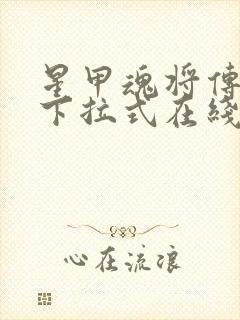 星甲魂将傳
下拉式在綫
心在流浪